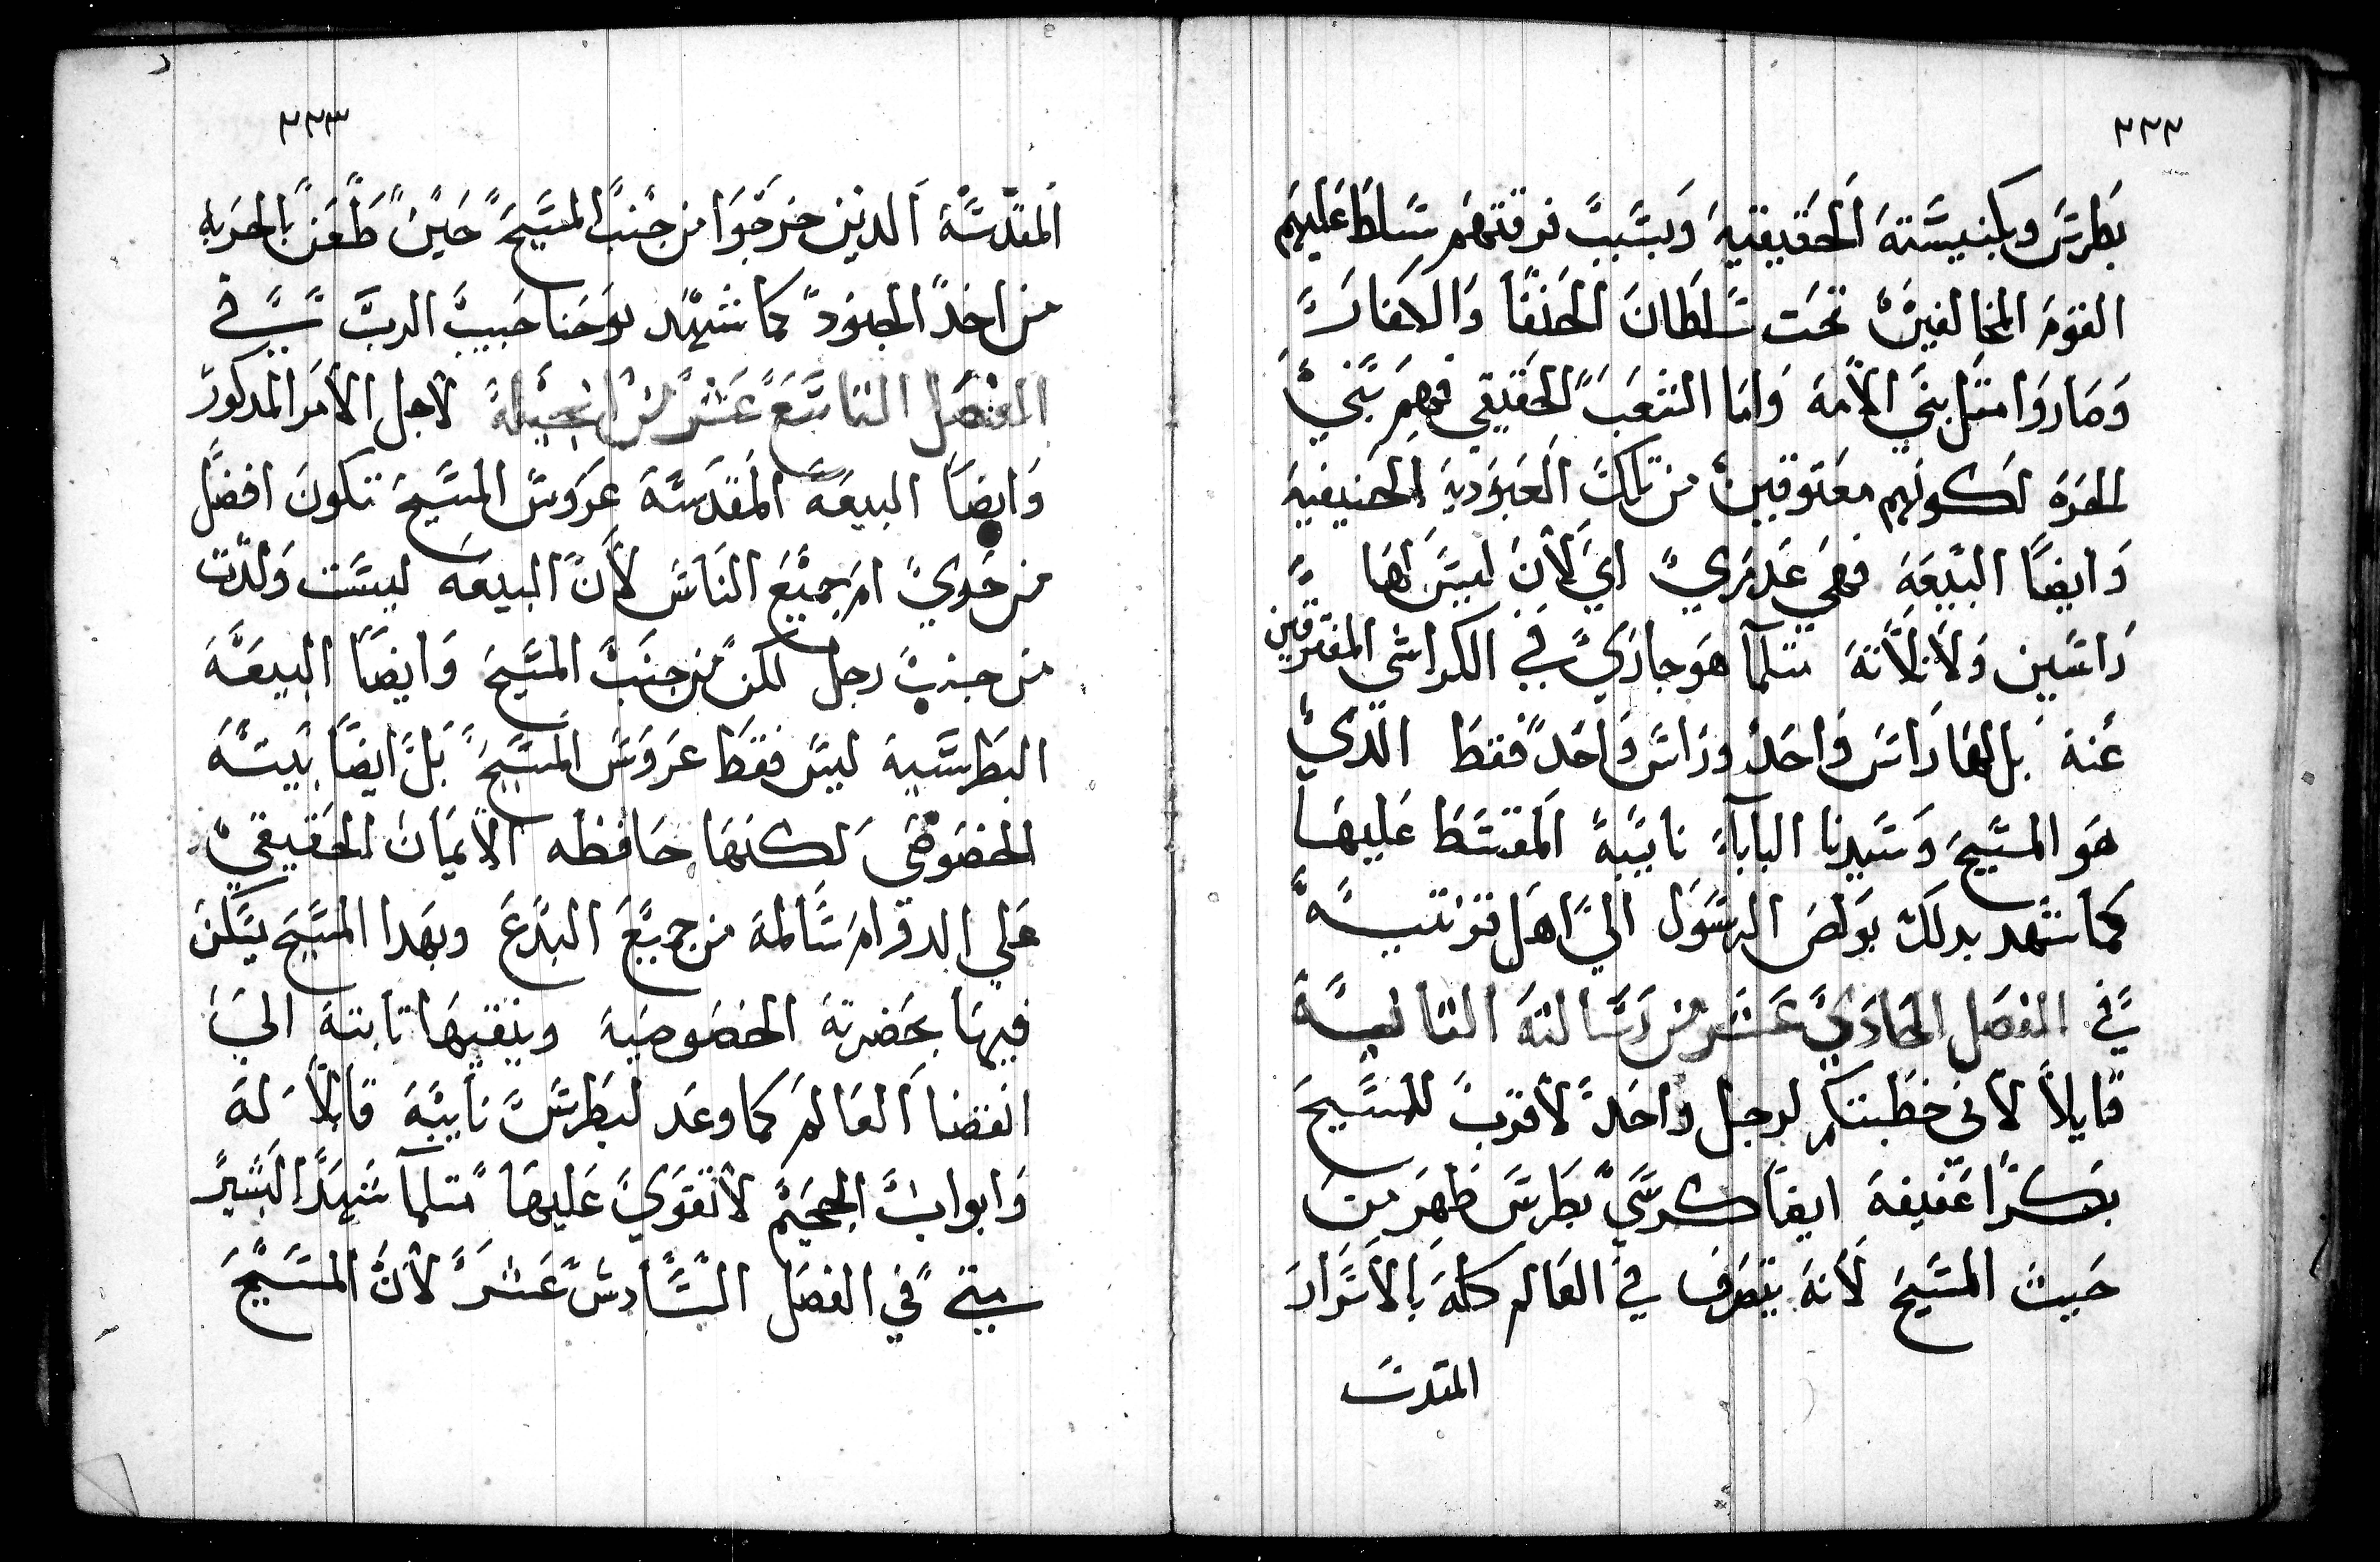 ٢٢٢
بطرس وبكنيسته الحقيقيه وبسبب فرقتهم سلط عليهم
القوم المخالفين تحت سلطان الحنفا والاكفار
وصاروا متل بني الامه واما الشعب الحقيقي فهم بني
الحره لكونهم معتوقين من تلك العبوديه الحنيفيه
وايضا البيعه فهي اي لان ليس لها
راسين ولا تلاته متلما هو جاري في الكراسي المفترقين
عنه بل لها راس واحد وراس واحد فقط الدي
هو المسيح وسيدنا البابا نايبه المقتسط عليها
كما شهد بدلك بولص الرسول الي اهل قرنتيه
في الفصل الحادي عشر من رسالته التانيه
قايلا لاني خطبتكم لرجل واحد لاقرب للمسيح
بكرا عفيفه ايضا كرسي بطرس ظهر من
حيث المسيح لانه يتصرف في العالم كله بالاسرار
المقدسه
٢٢٣
المقدسه الدين خرجوا من جنب المسيح حين طعن بالحربه
من احد الجنود كما شهد يوحنا حبيب الرب في
الفصل التاسع عشر من انجيله لاجل الامر المدكور
وايضا البيعه المقدسه عروس المسيح تكون افضل
من حوي ام جميع الناس لان البيعه ليست ولدت
من جنب رجل لكن من جنب المسيح وايضا البيعه
البطرسيه ليس فقط عروس المسيح بل ايضا بيته
الخصوصي لكنها حافظه الايمان الحقيقي
علي الدوام سالمه من جميع البدع وبهدا المسيح يسكن
فيها بحضرته الخصوصيه ويبقيها تابته الي
انقضا العالم كما وعد لبطرس نايبه قايلا له
وابواب الجحيم لا تقوي عليها متلما شهد البشير
متي في الفصل السادس عشر لان المسيح